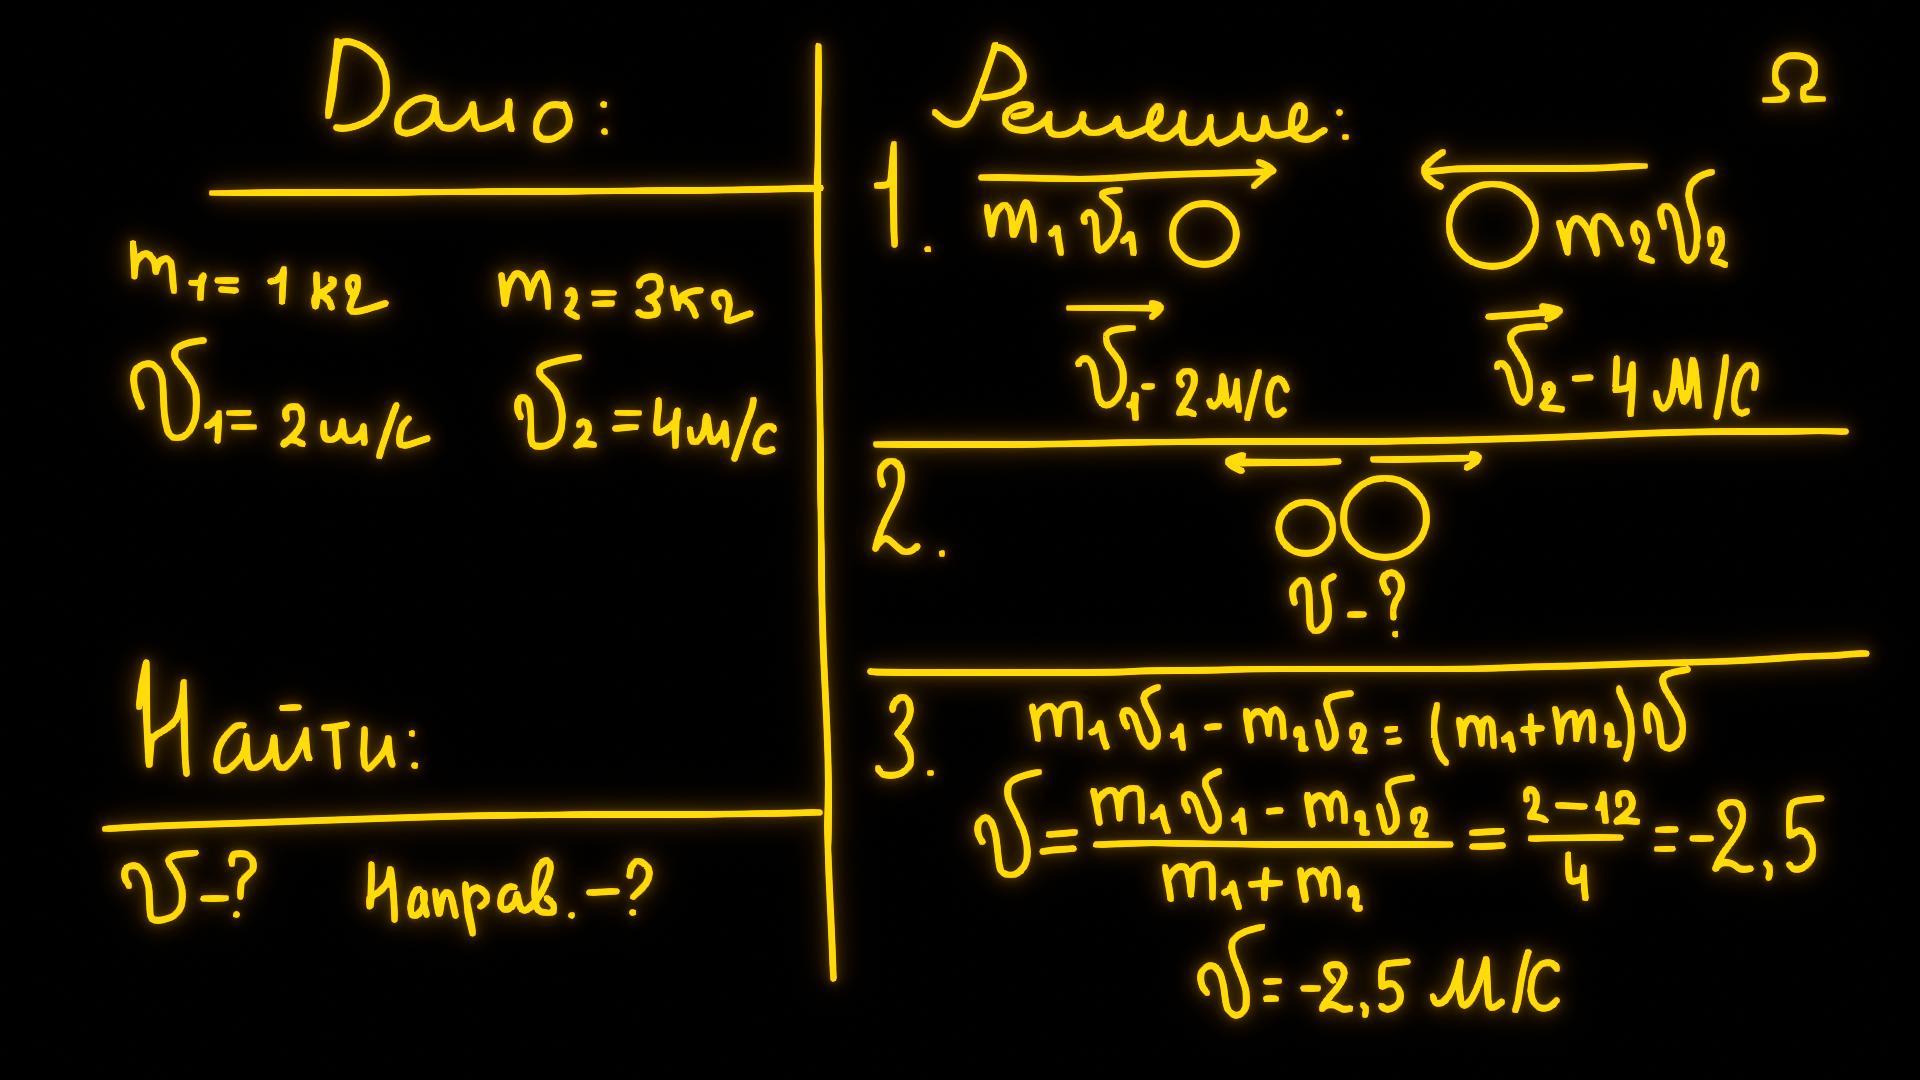 Дано:
m₁ = 1 кг m₂ = 3 кг
v₁ = 2 м/с v₂ = 4 м/с
Найти:
v - ? Направ. - ?
Решение:
Ω
1. m₁v₁ m₂v₂
v₁ - 2 м/с v₂ - 4 м/с
2.
v - ?
3. m₁v₁ - m₂v₂ = (m₁ + m₂)v
v = (m₁v₁ - m₂v₂)/(m₁ + m₂) = (2 - 12)/4 = -2,5
v = -2,5 м/с